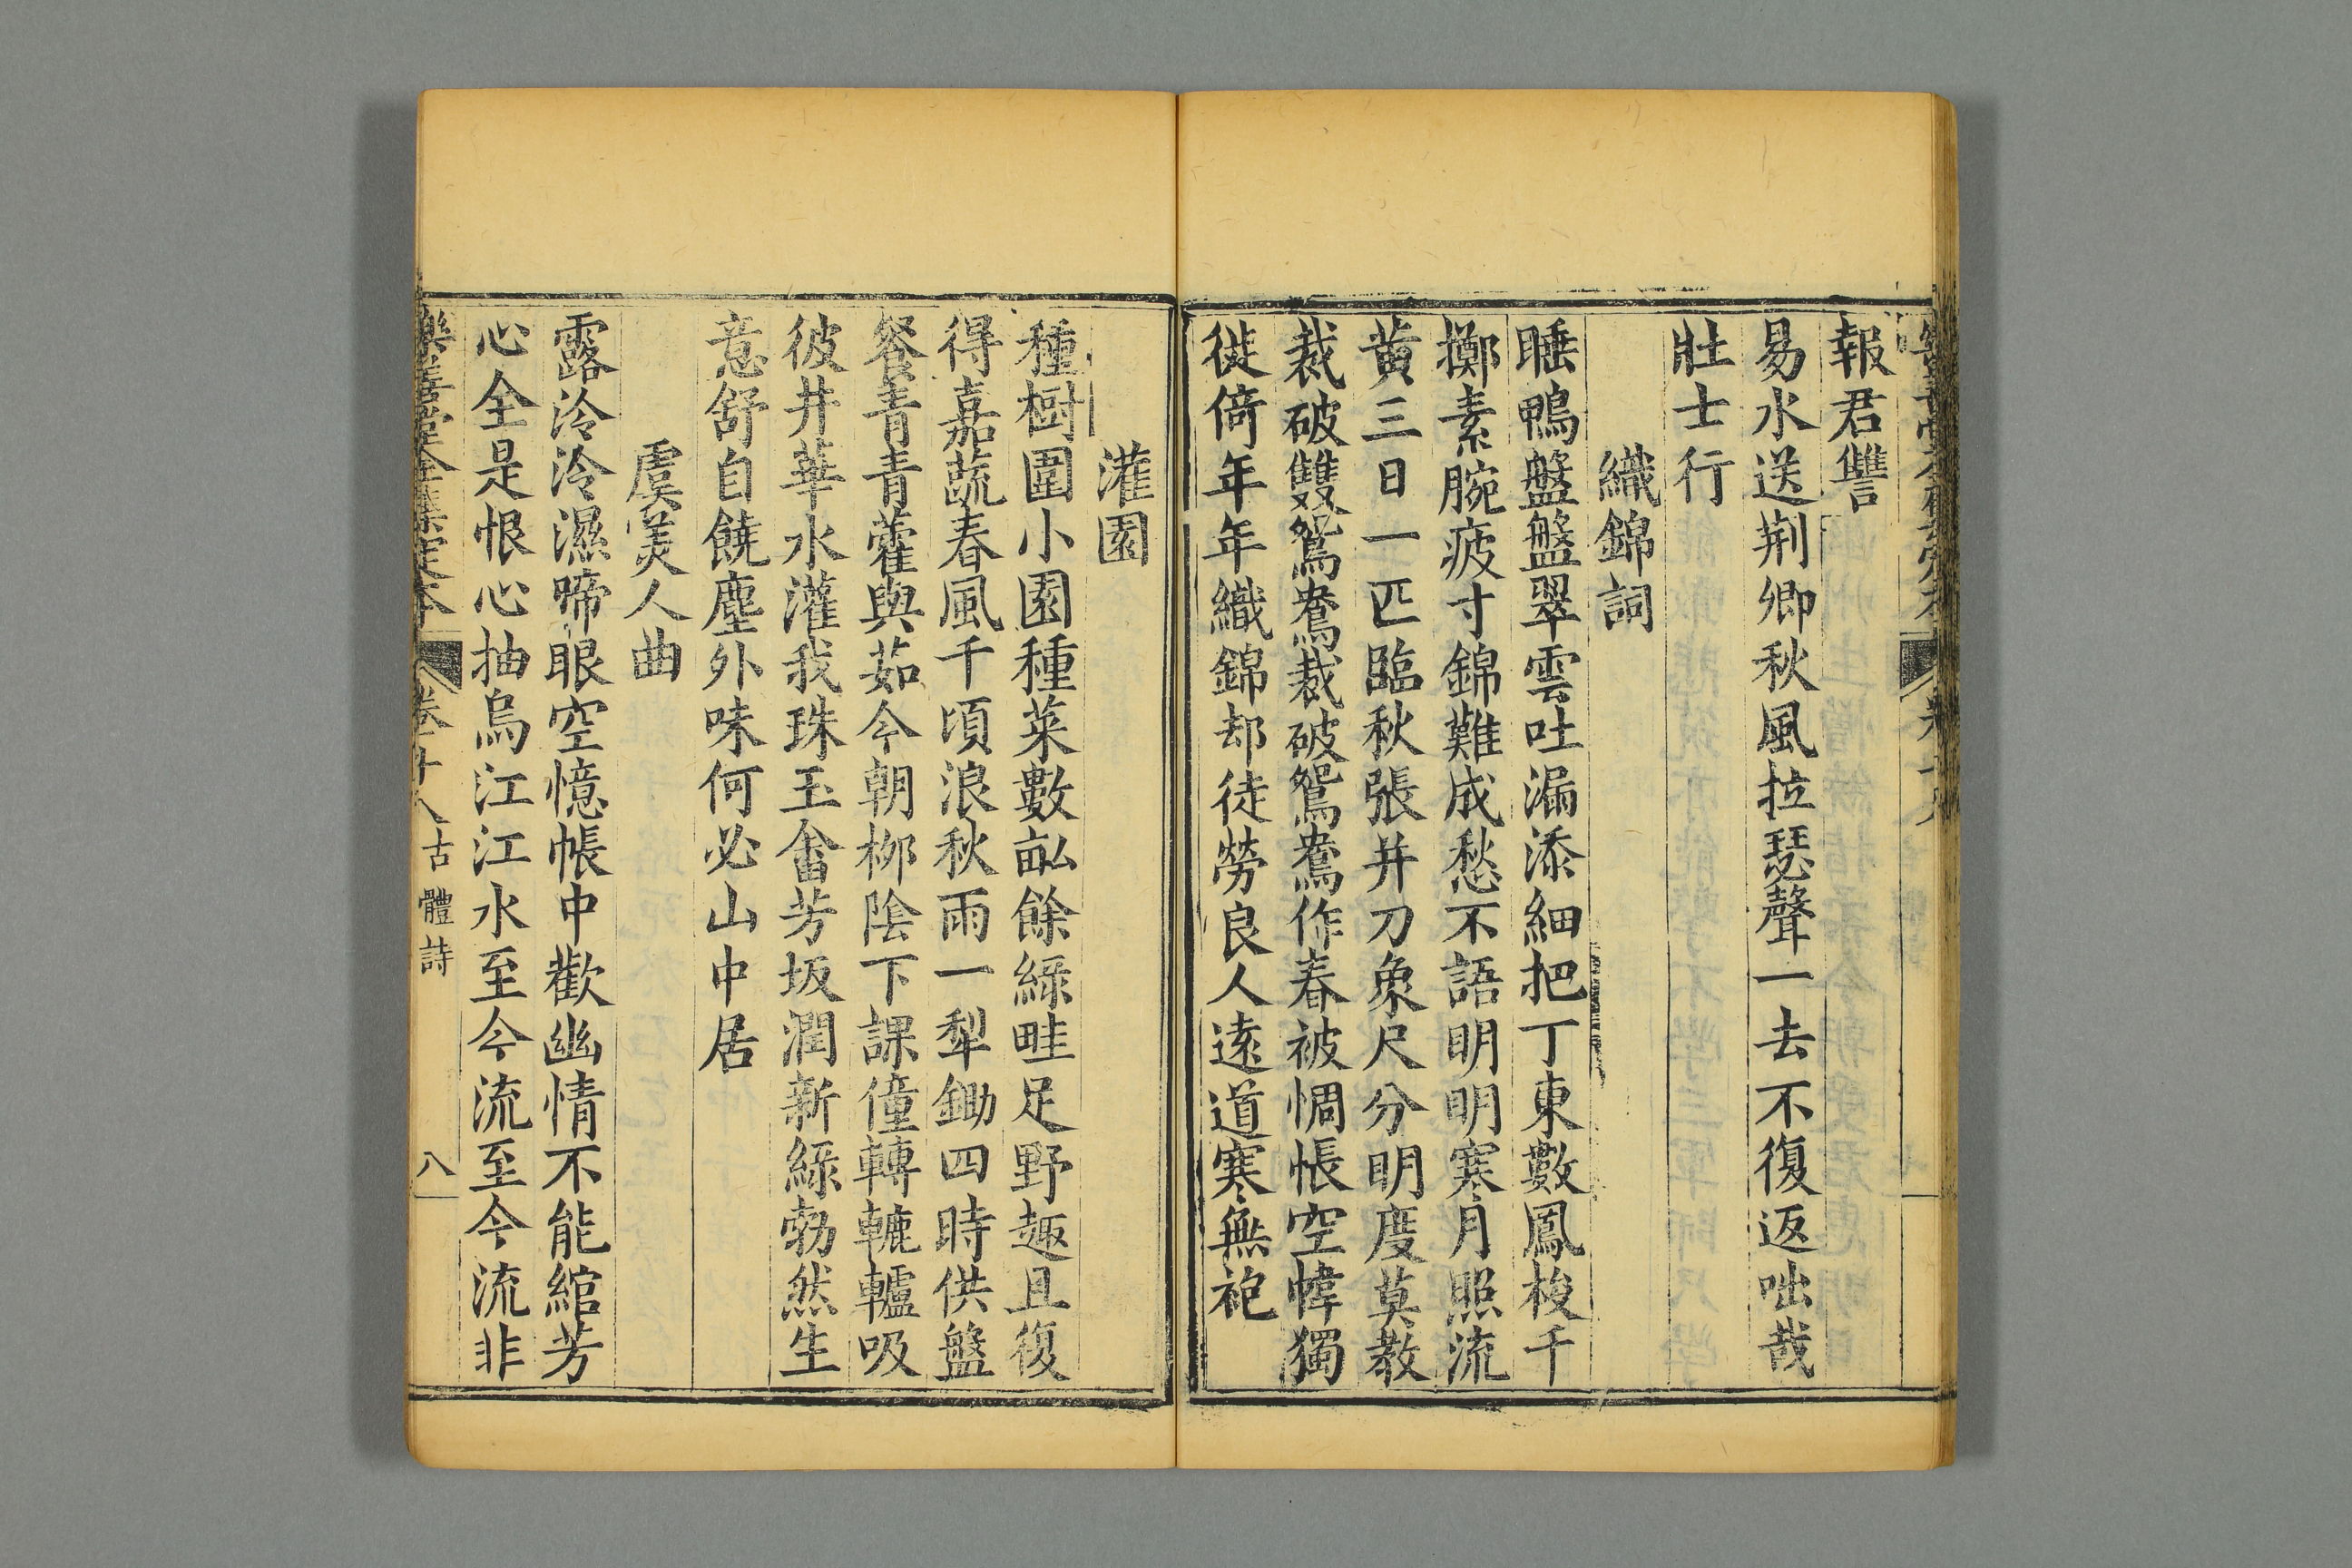 報君讐
易水送荆卿秋風拉瑟聲一去不復返咄哉
壯士行
織錦詞
睡鴨盤盤翠雲吐漏添細把丁東數鳳梭千
擲素腕疲寸錦難成愁不語明明寒月照流
黄三日一匹臨秋張并刀象尺分明度莫教
裁破雙鴛鴦裁破鴛鴦作春被惆悵空幃獨
徙倚年年織錦却徒勞良人遠道寒無袍
灌園
種樹圍小園種菜數畝餘綠畦足野趣且復
得嘉蔬春風千頃浪秋雨一犁鋤四時供盤
餐青青藿與茹今朝柳陰下課僮轉轆轤吸
彼井華水灌我珠玉畬芳坂潤新綠勃然生
意舒自饒塵外味何必山中居
虞美人曲
露泠泠濕啼眼空憶帳中歡幽情不能綰芳
心全是恨心抽烏江江水至今流至今流非
樂善堂全集定本 卷十八 古體詩 八